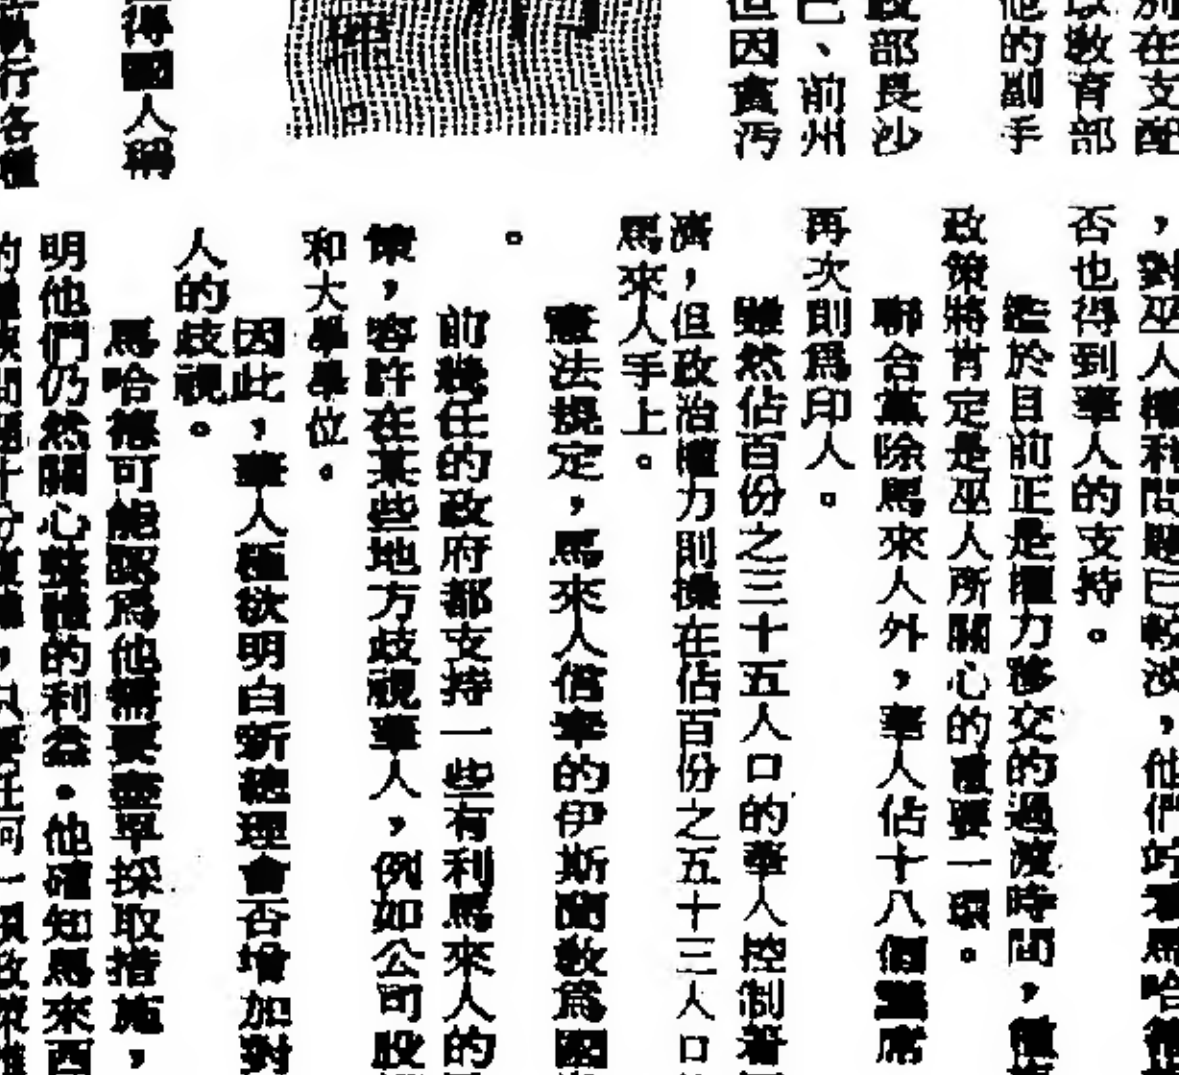 別在支配
以教育部
他的副手
政部長沙
巳、前州
但因貪污
得國人稱
執行各種
，對巫人權利問題已較淡，他們站看馬哈
否也得到華人的支持。
鑑於目前正是權力移交的過渡時間，種
政策將肯定是巫人所關心的重要一環。
聯合黨除馬來人外，華人佔十八個議席
再次則爲印人。
雖然佔百份之三十五人口的華人控制著
濟，但政治權力則操在佔百份之五十三人口
馬來人手上。
憲法規定，馬來人信奉的伊斯蘭教爲國
。
前幾任的政府都支持一些有利馬來人的
策，容許在某些地方歧視華人，例如公司股
和大學學位。
因此，華人極欲明白新總理會否增加對
人的歧視。
馬哈德可能認爲他需要盡早採取措施，
明他們仍然關心整體的利益。他確知馬來西
理